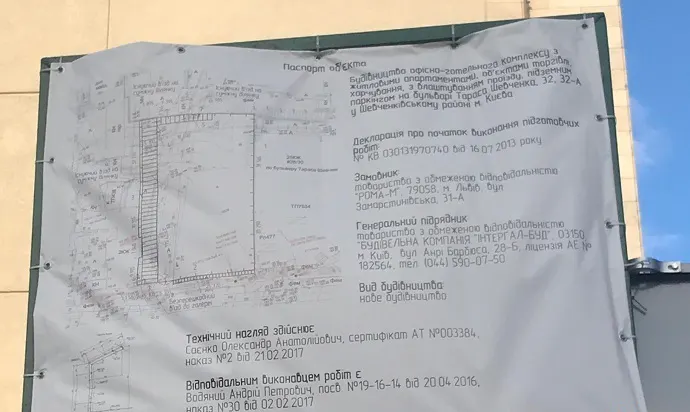 Паспорт об'єкта
Будівництво офісно-готельного комплексу з
житловими апартаментами, об'єктами торгівлі,
харчування, з влаштуванням проїзду, підземним
паркінгом на бульварі Тараса Шевченка, 32, 32-А
у Шевченківському районі м. Києва
Декларація про початок виконання підготовчих
робіт
№ КВ 030131970740 від 16.07.2013 року
Замовник
товариство з обмеженою відповідальністю
"РОМА-М", 79058, м. Львів, вул.
Замарстинівська, 31-А
Генеральний підрядник
товариство з обмеженою відповідальністю
"БУДІВЕЛЬНА КОМПАНІЯ "ІНТЕРГАЛ-БУД", 03150,
м. Київ, вул. Анрі Барбюса, 28-Б, ліцензія АЕ №
182564, тел. (044) 590-07-50
Вид будівництва
нове будівництво
Технічний нагляд здійснює
Саєнко Олександр Анатолійович, сертифікат АТ №003384,
наказ №2 від 21.02.2017
Відповідальним виконавцем робіт є
Водяний Андрій Петрович, посв. №19-16-14 від 20.04.2016,
наказ №30 від 02.02.2017